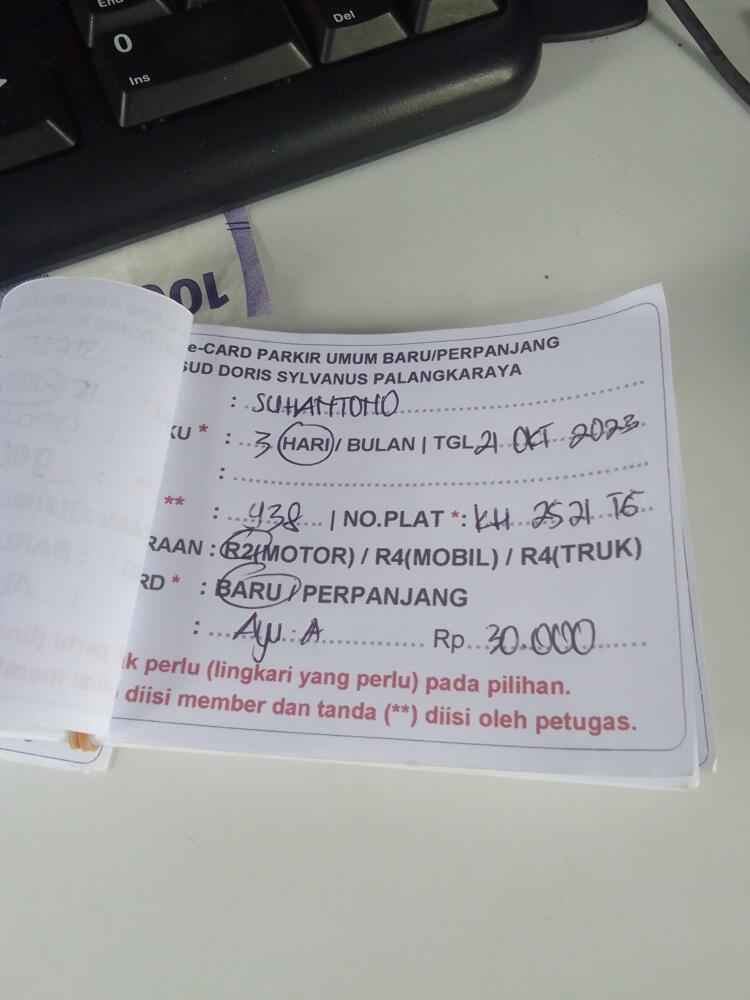 End
0
Ins
Del
100
e-CARD PARKIR UMUM BARU/PERPANJANG
SUD DORIS SYLVANUS PALANGKARAYA
: SUHANTONO
KU * : 3 HARI / BULAN | TGL 21 OKT 2023
:
** : 438 | NO.PLAT *: KH 2521 TG
RAAN : R2(MOTOR) / R4(MOBIL) / R4(TRUK)
RD * : BARU / PERPANJANG
: Ayu. A Rp. 30.000
k perlu (lingkari yang perlu) pada pilihan.
diisi member dan tanda (**) diisi oleh petugas.